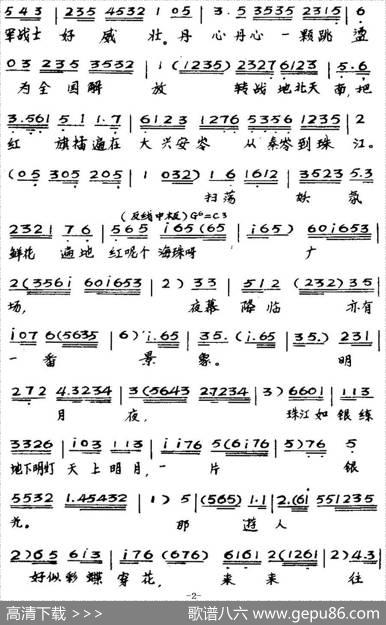 5 4 3 | 2 3 5 4532 1 0 5 | 3. 5 53535 235 1 5 | 6
军战士 好 威 壮。丹 心丹心 一 颗跳 盪
0 3 2 3 5 3532 | 1 (1 2 3 5) 2327 6123 | 5. 6
为全 国解 放 转战 地北天 南,把
3.561 5 1 1.7 | 6 1 2 3 1276 5356 1235 | 2
红 旗插 遍在 大 兴安岺 从 秦岺到 珠 江。
(0 5 3 0 5 2 0 5 | 1 0 3 2) | 1 6 1612 | 3523 5.3
扫 荡 妖 氛
(反线中板) G°=C3
2321 7 6 | 5 6 5 i 6 5 (6 5 | i 6 5 ) | 60i653
鲜花 遍 地 红呢个 海珠呀 广
2 (3 5 6 i 60i653 | 2 ) 3 3 | 5 1 2 (232) 3 5
场, 夜幕 降 临 亦有
i 0 7 6 (5635 | 6 ) i. 6 5 | 3 5. ( i. 6 5 | 3 5. ) 2 3 1
一 番 景 象。 明
2 7 2 4.3234 | 3 (5643 27234 | 3 ) 6601 | 1 1 3
月 夜, 珠江 如 银 练
3326 | i 0 3 1 1 3 | i i 7 6 5 ( 6 i 7 6 | 5 ) 7 6 5
地下明灯 天 上 明 月,一 片 银
5532 1.45432 | 1 ) 5 | (565) 1.1 | 2.(6i 551235
光。 那 遊 人
2 ) 6 5 6 i 3 | i 7 6 (676) | 6 i 6 i 2 (1 2 6 1 | 2 ) 4.3
好似 彩 蝶 穿 花, 来 来 往
-2-
高清下载 >>>
歌谱八六 www.gepu86.com